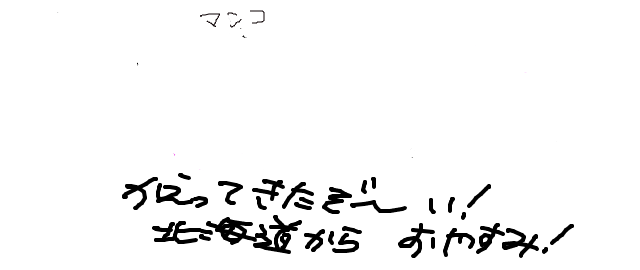 マンコ
かえってきたぞ〜い!
北海道から おやすみ!